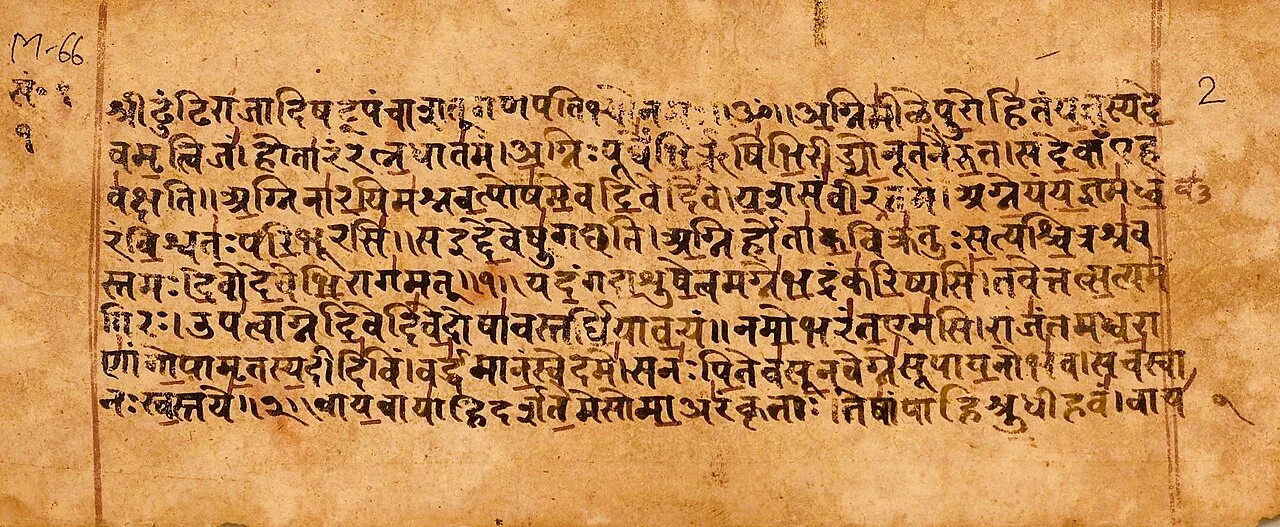 M-66
2
१
श्रीढुंढिराजादिषट्पंचाशत् गणपतिभ्यो नमः ॥ ॐ ॥ अग्निमीळेपुरोहितंयज्ञस्यदे
वमृत्विजं। होतारंरत्नधातमं। अग्निःपूर्वेभिर्ऋषिभिरीड्योनूतनैरुत। सदेवाँएह
वक्षति॥ अग्निनारयिमश्नवत्पोषमेवदिवेदिवे। यशसंवीरवत्तमं। अग्नेयंयज्ञमध्व
रंविश्वतःपरिभूरसि॥ सइद्देवेषुगछति। अग्निर्होताकविक्रतुःसत्यश्चित्रश्रव
स्तमः। देवोदेवेभिरागमत्॥१॥ यदंगदाशुषेत्वमग्नेभद्रंकरिष्यसि। तवेत्तत्सत्यमं
गिरः। उपत्वाग्नेदिवेदिवेदोषावस्तर्धियावयं॥ नमोभरंतएमसि। राजंतमध्वरा
णांगोपामृतस्यदीदिविं। वर्द्धमानंस्वेदमे। सनःपितेवसूनवेग्नेसूपायनोभव। सचस्वा
नःस्वस्तये॥२॥ वायवायाहिदर्शतेमेसोमाअरंकृताः। तेषांपाहिश्रुधीहवं। वाय